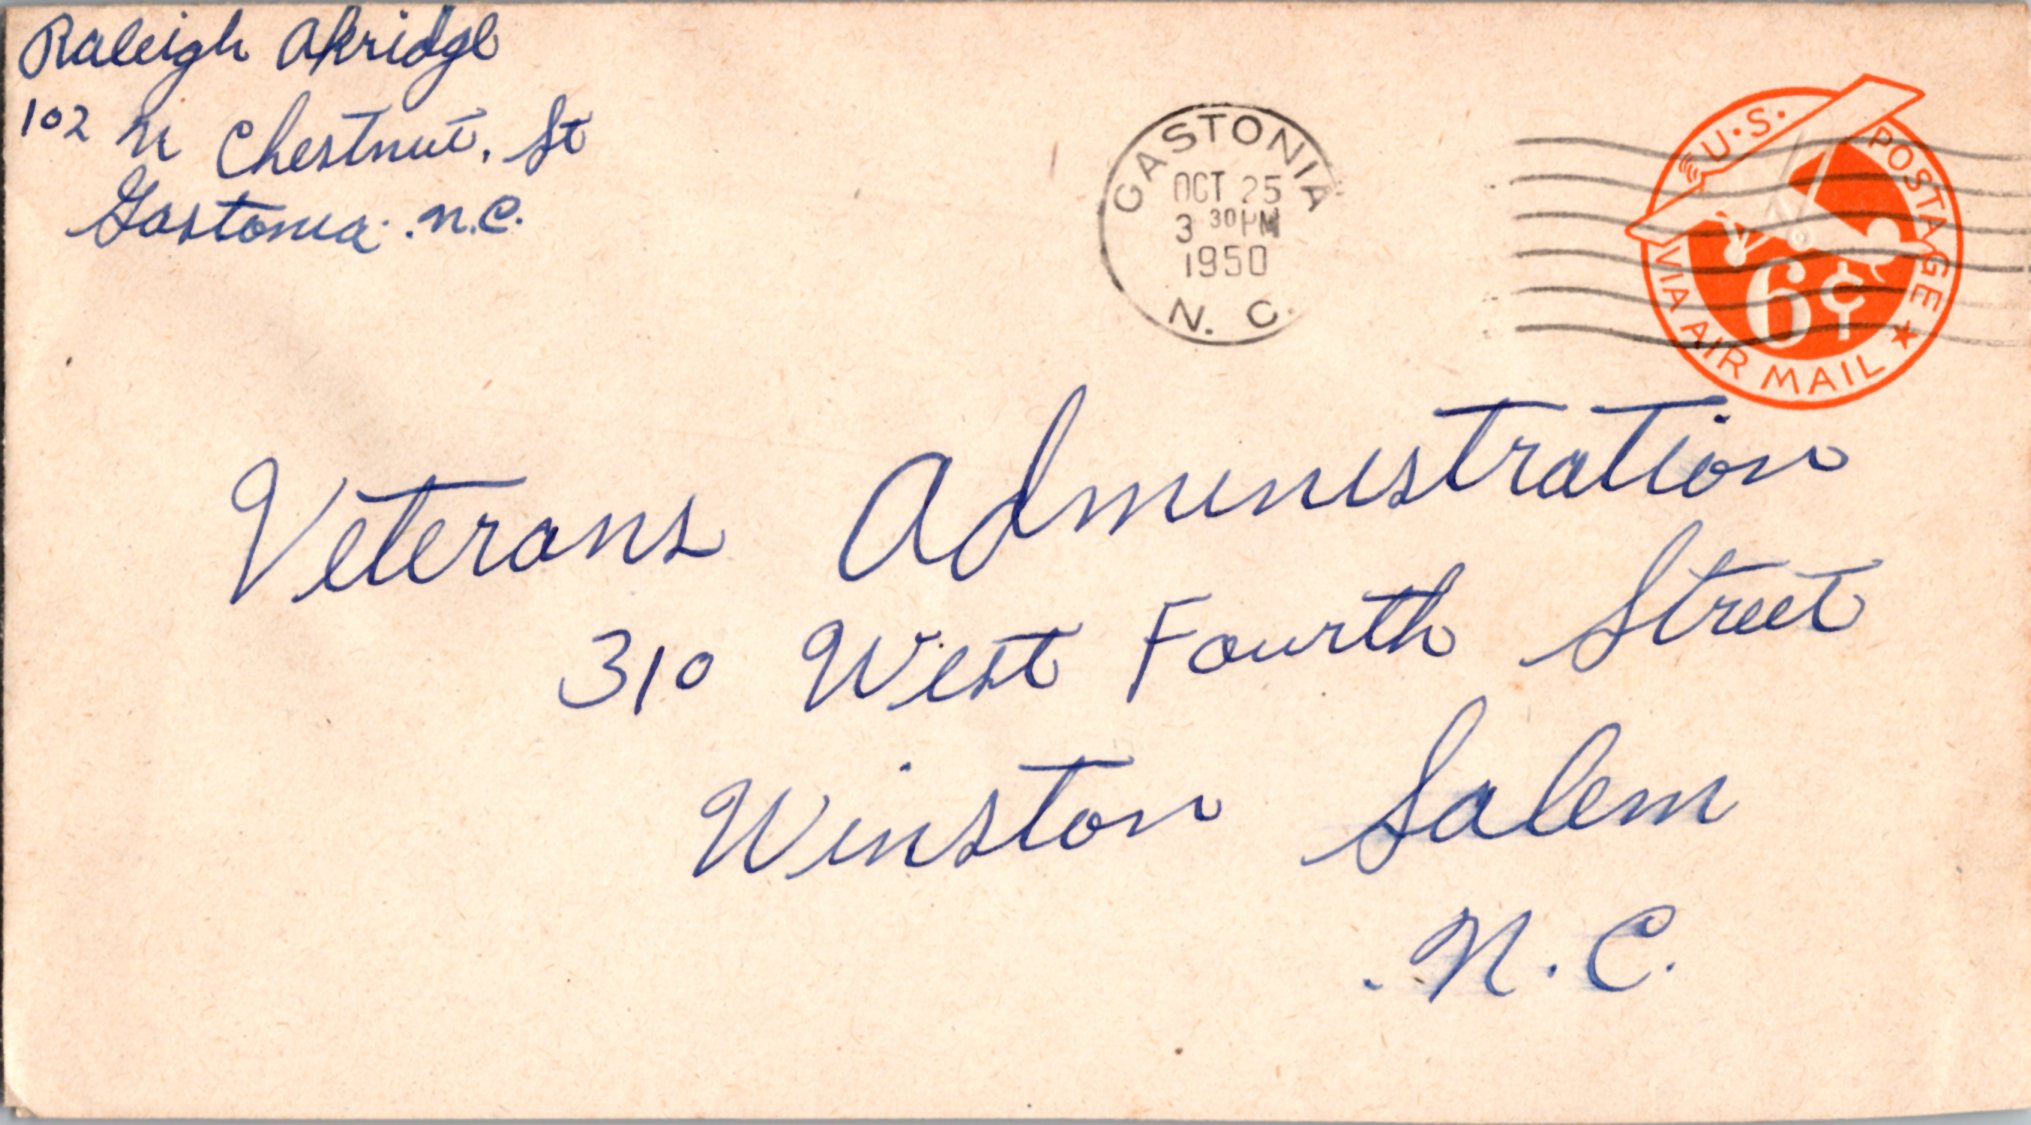 Raleigh Akridge
102 N Chestnut. St
Gastonia. N.C.
GASTONIA
OCT 25
3 30 PM
1950
N. C.
U.S. POSTAGE
6¢
VIA AIR MAIL
Veterans Administration
310 West Fourth Street
Winston Salem
. N. C.